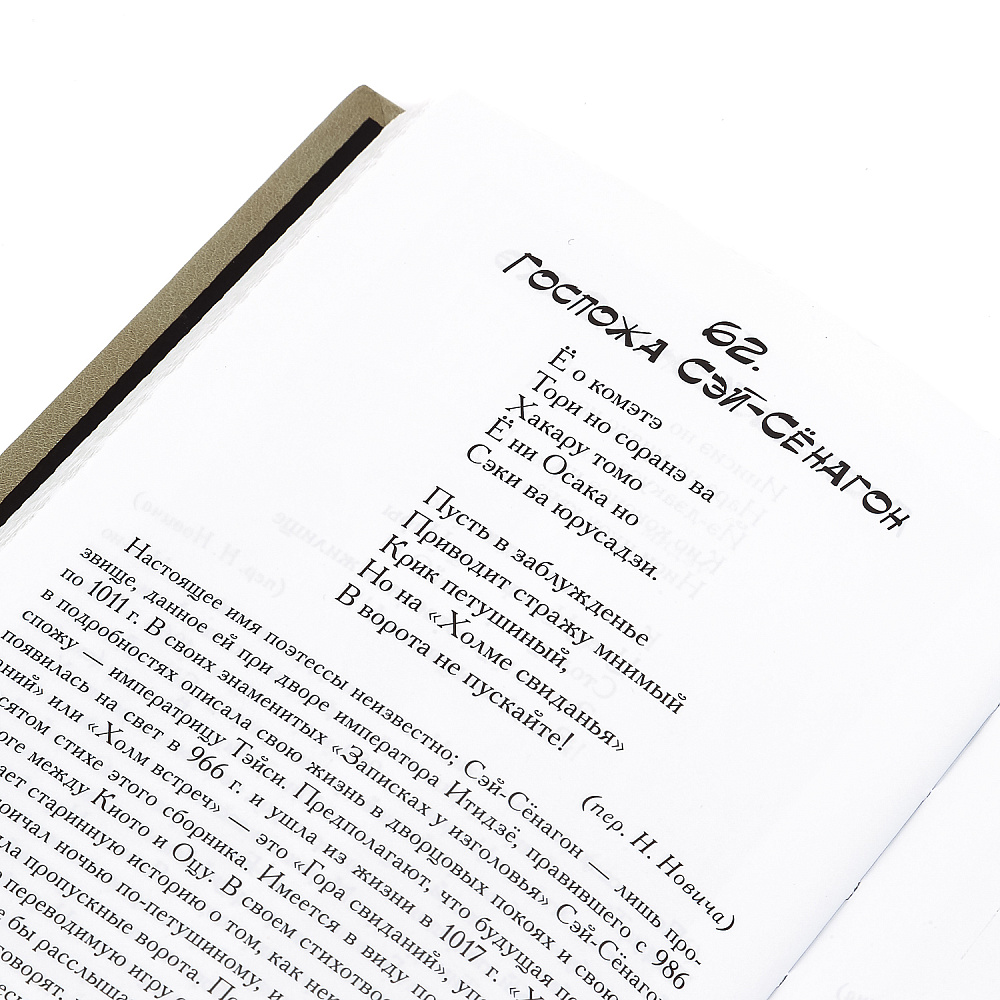 62.
ГОСПОЖА СЭЙ-СЁНАГОН
Ё о комэтэ
Тори но соранэ ва
Хакару томо
Ё ни Осака но
Сэки ва юрусадзи.
Пусть в заблужденье
Приводит стражу мнимый
Крик петушиный,
Но на «Холме свиданья»
В ворота не пускайте!
(пер. Н. Новича)
Настоящее имя поэтессы неизвестно; Сэй-Сёнагон — лишь про-
звище, данное ей при дворе императора Итидзё, правившего с 986
по 1011 г. В своих знаменитых «Записках у изголовья» Сэй-Сёнагон
в подробностях описала свою жизнь в дворцовых покоях и свою
спожу — императрицу Тэйси. Предполагают, что будущая
появилась на свет в 966 г. и ушла из жизни в 1017 г.
или «Холм встреч» — это «Гора свиданий»,
стихе этого сборника. Имеется в виду
между Киото и Оцу. В своем
старинную историю о том, как
ночью по-петушиному,
пропускные ворота.
переводимую игру
бы